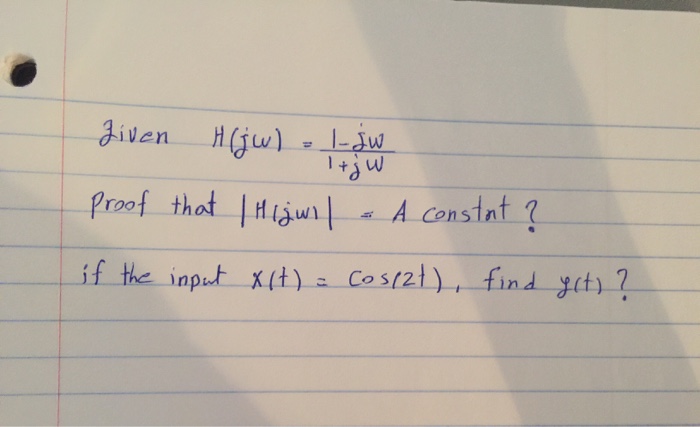 Given H(jw) = 1-jw
1+jw
Proof that |H(jw)| = A constnt ?
if the input x(t) = cos(2t), find y(t) ?